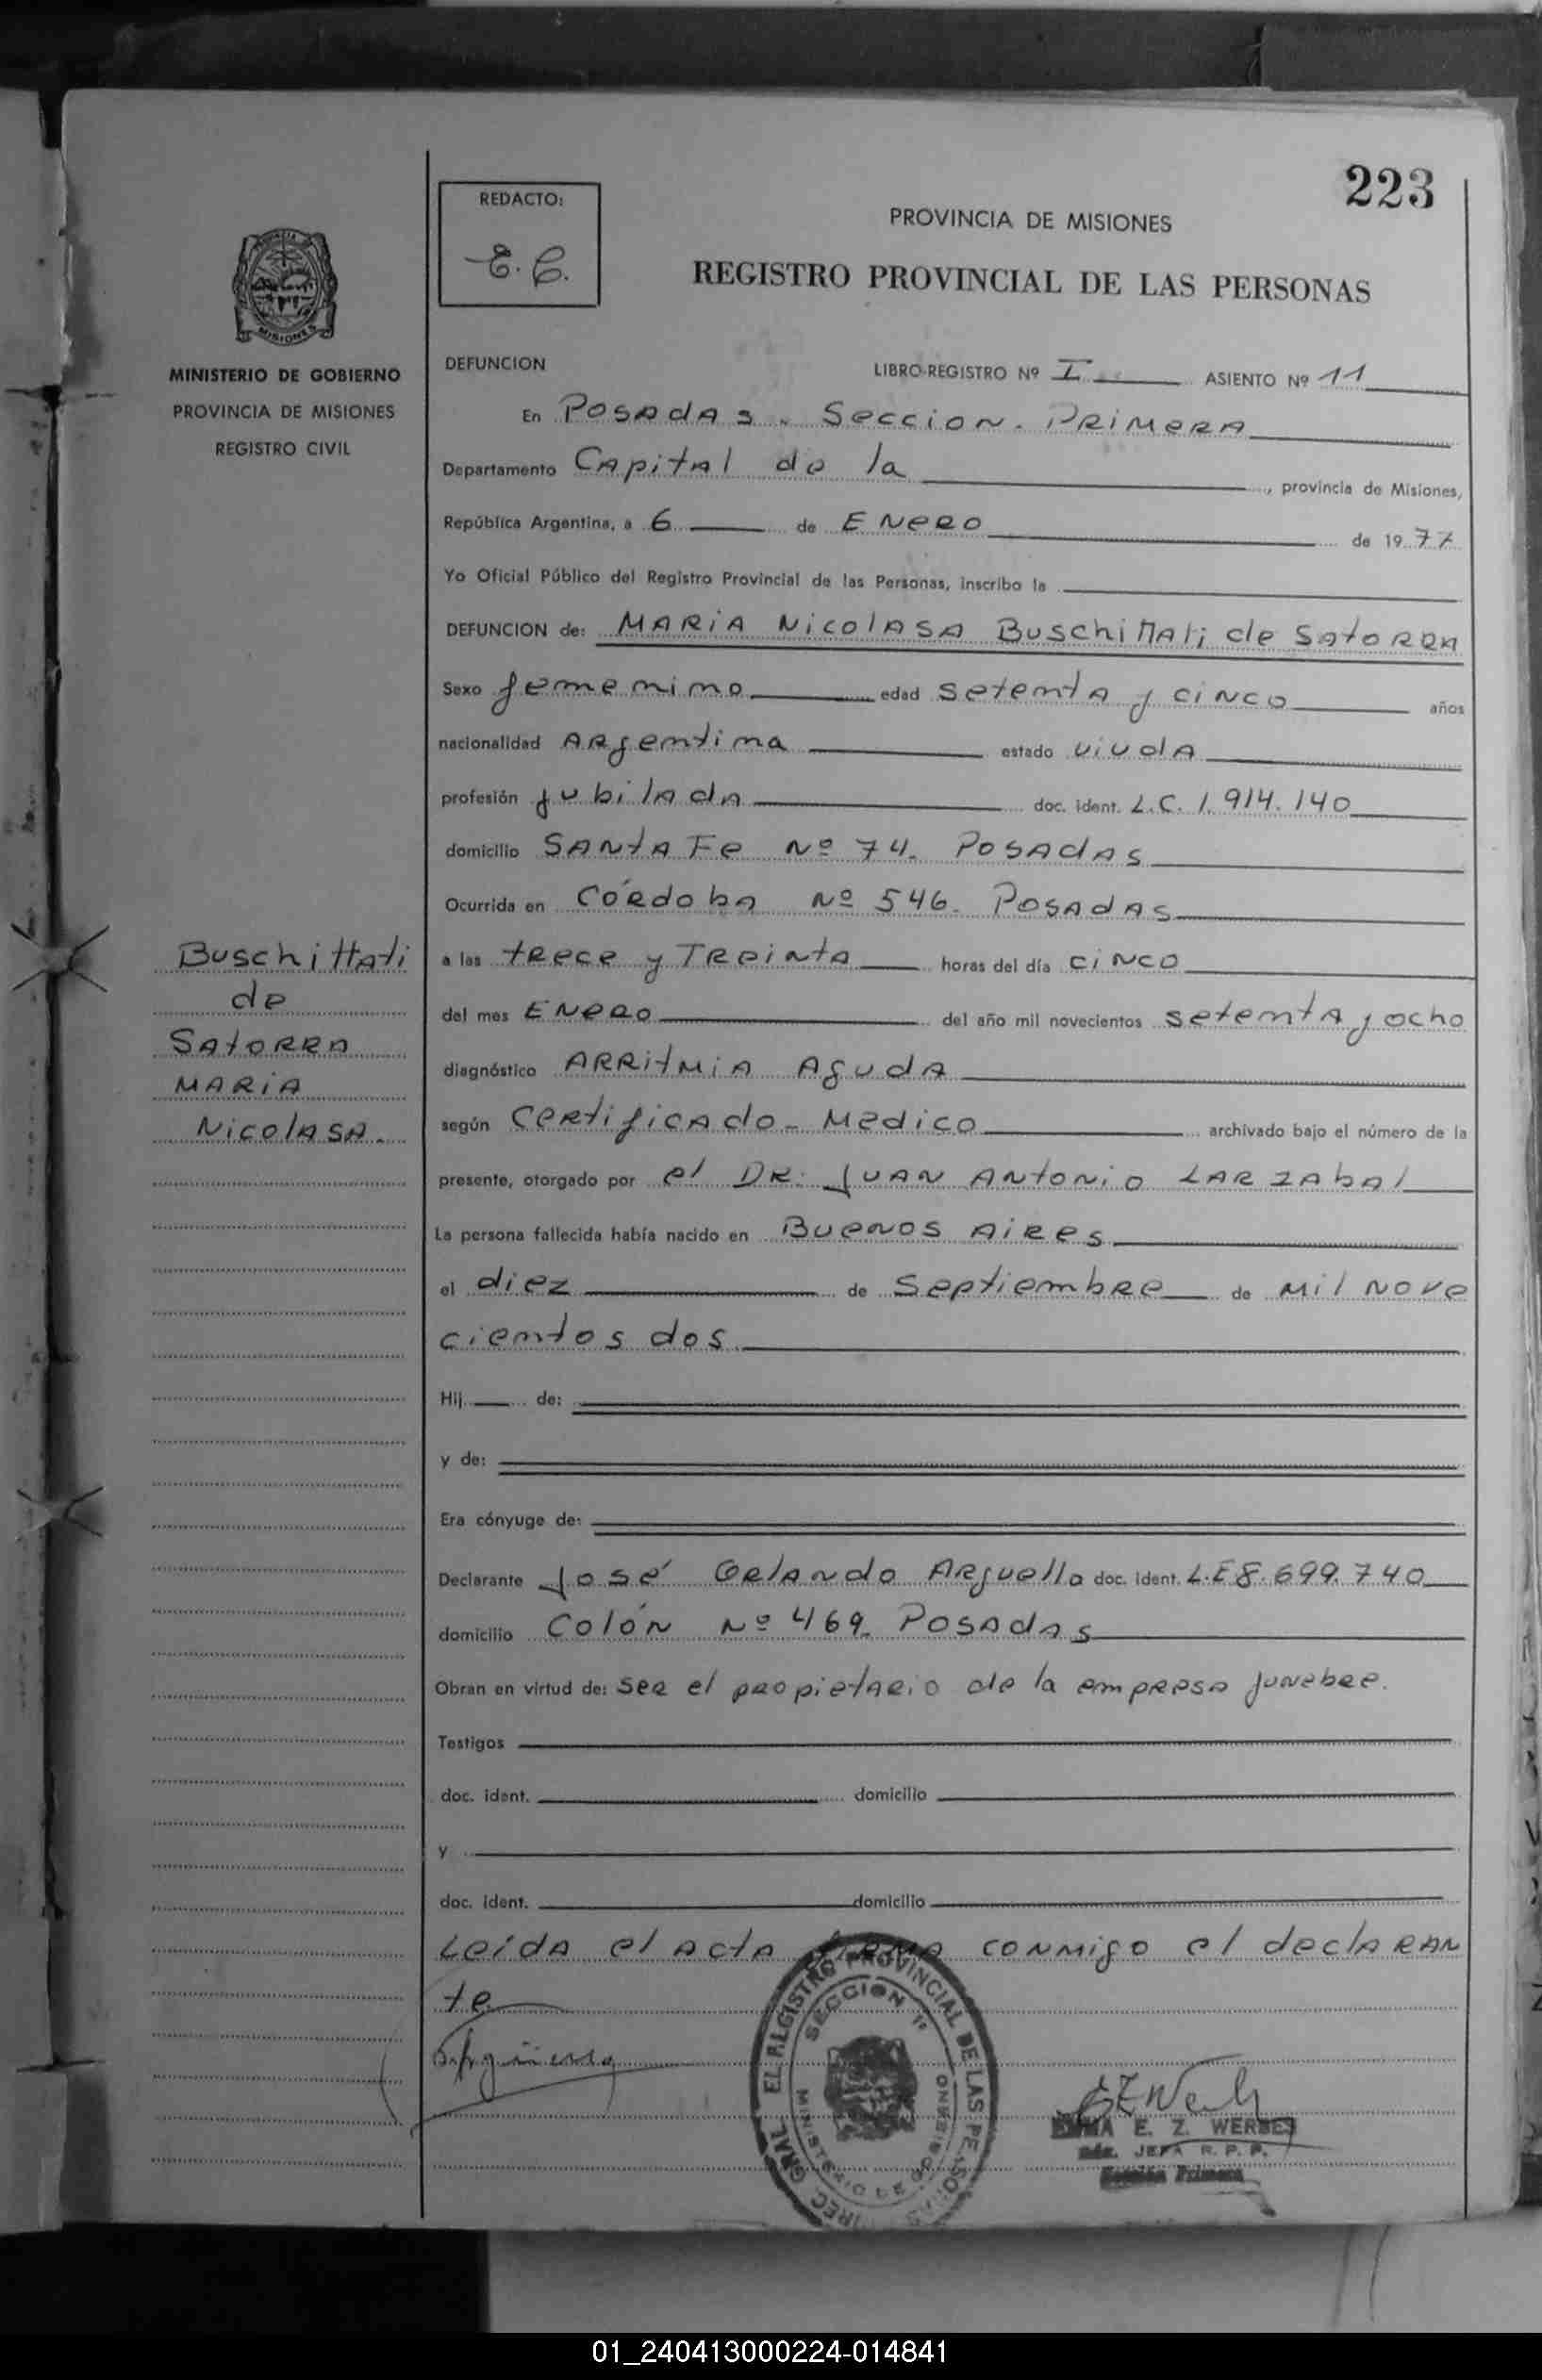 223
REDACTO:
E. C.
PROVINCIA DE MISIONES
REGISTRO PROVINCIAL DE LAS PERSONAS
MISIONES
MINISTERIO DE GOBIERNO
PROVINCIA DE MISIONES
REGISTRO CIVIL
DEFUNCION LIBRO-REGISTRO Nº I ASIENTO Nº 11
En Posadas. Seccion. Primera
Departamento Capital de la, provincia de Misiones,
República Argentina, a 6 de Enero de 1977
Yo Oficial Público del Registro Provincial de las Personas, inscribo la
DEFUNCION de: Maria Nicolasa Buschittati de Satorra
Sexo femenino edad setenta y cinco años
nacionalidad Argentina estado viuda
profesión jubilada doc. ident. L.C. 1.914.140
domicilio Santa Fe Nº 74. Posadas
Ocurrida en Córdoba Nº 546. Posadas
a las trece y treinta horas del día cinco
del mes Enero del año mil novecientos setenta y ocho
diagnóstico Arritmia Aguda
según Certificado - Medico archivado bajo el número de la
presente, otorgado por el Dr. Juan Antonio Larzabal
La persona fallecida había nacido en Buenos Aires
el diez de Septiembre de mil nove
cientos dos
Hij de:
y de:
Era cónyuge de:
Declarante José Orlando Arguello doc. ident. L.E 8.699.740
domicilio Colón Nº 469. Posadas
Obran en virtud de: ser el propietario de la empresa funebre.
Testigos
doc. ident. domicilio
y
doc. ident. domicilio
Leída el acta firma conmigo el declaran
te
Buschittati
de
Satorra
Maria
Nicolasa.
EL REGISTRO PROVINCIAL DE LAS PERSONAS
SECCION 1ª
MINISTERIO DE GOBIERNO
E. Z. WERBES
JEFA R. P. P.
Sección Primera
01_240413000224-014841